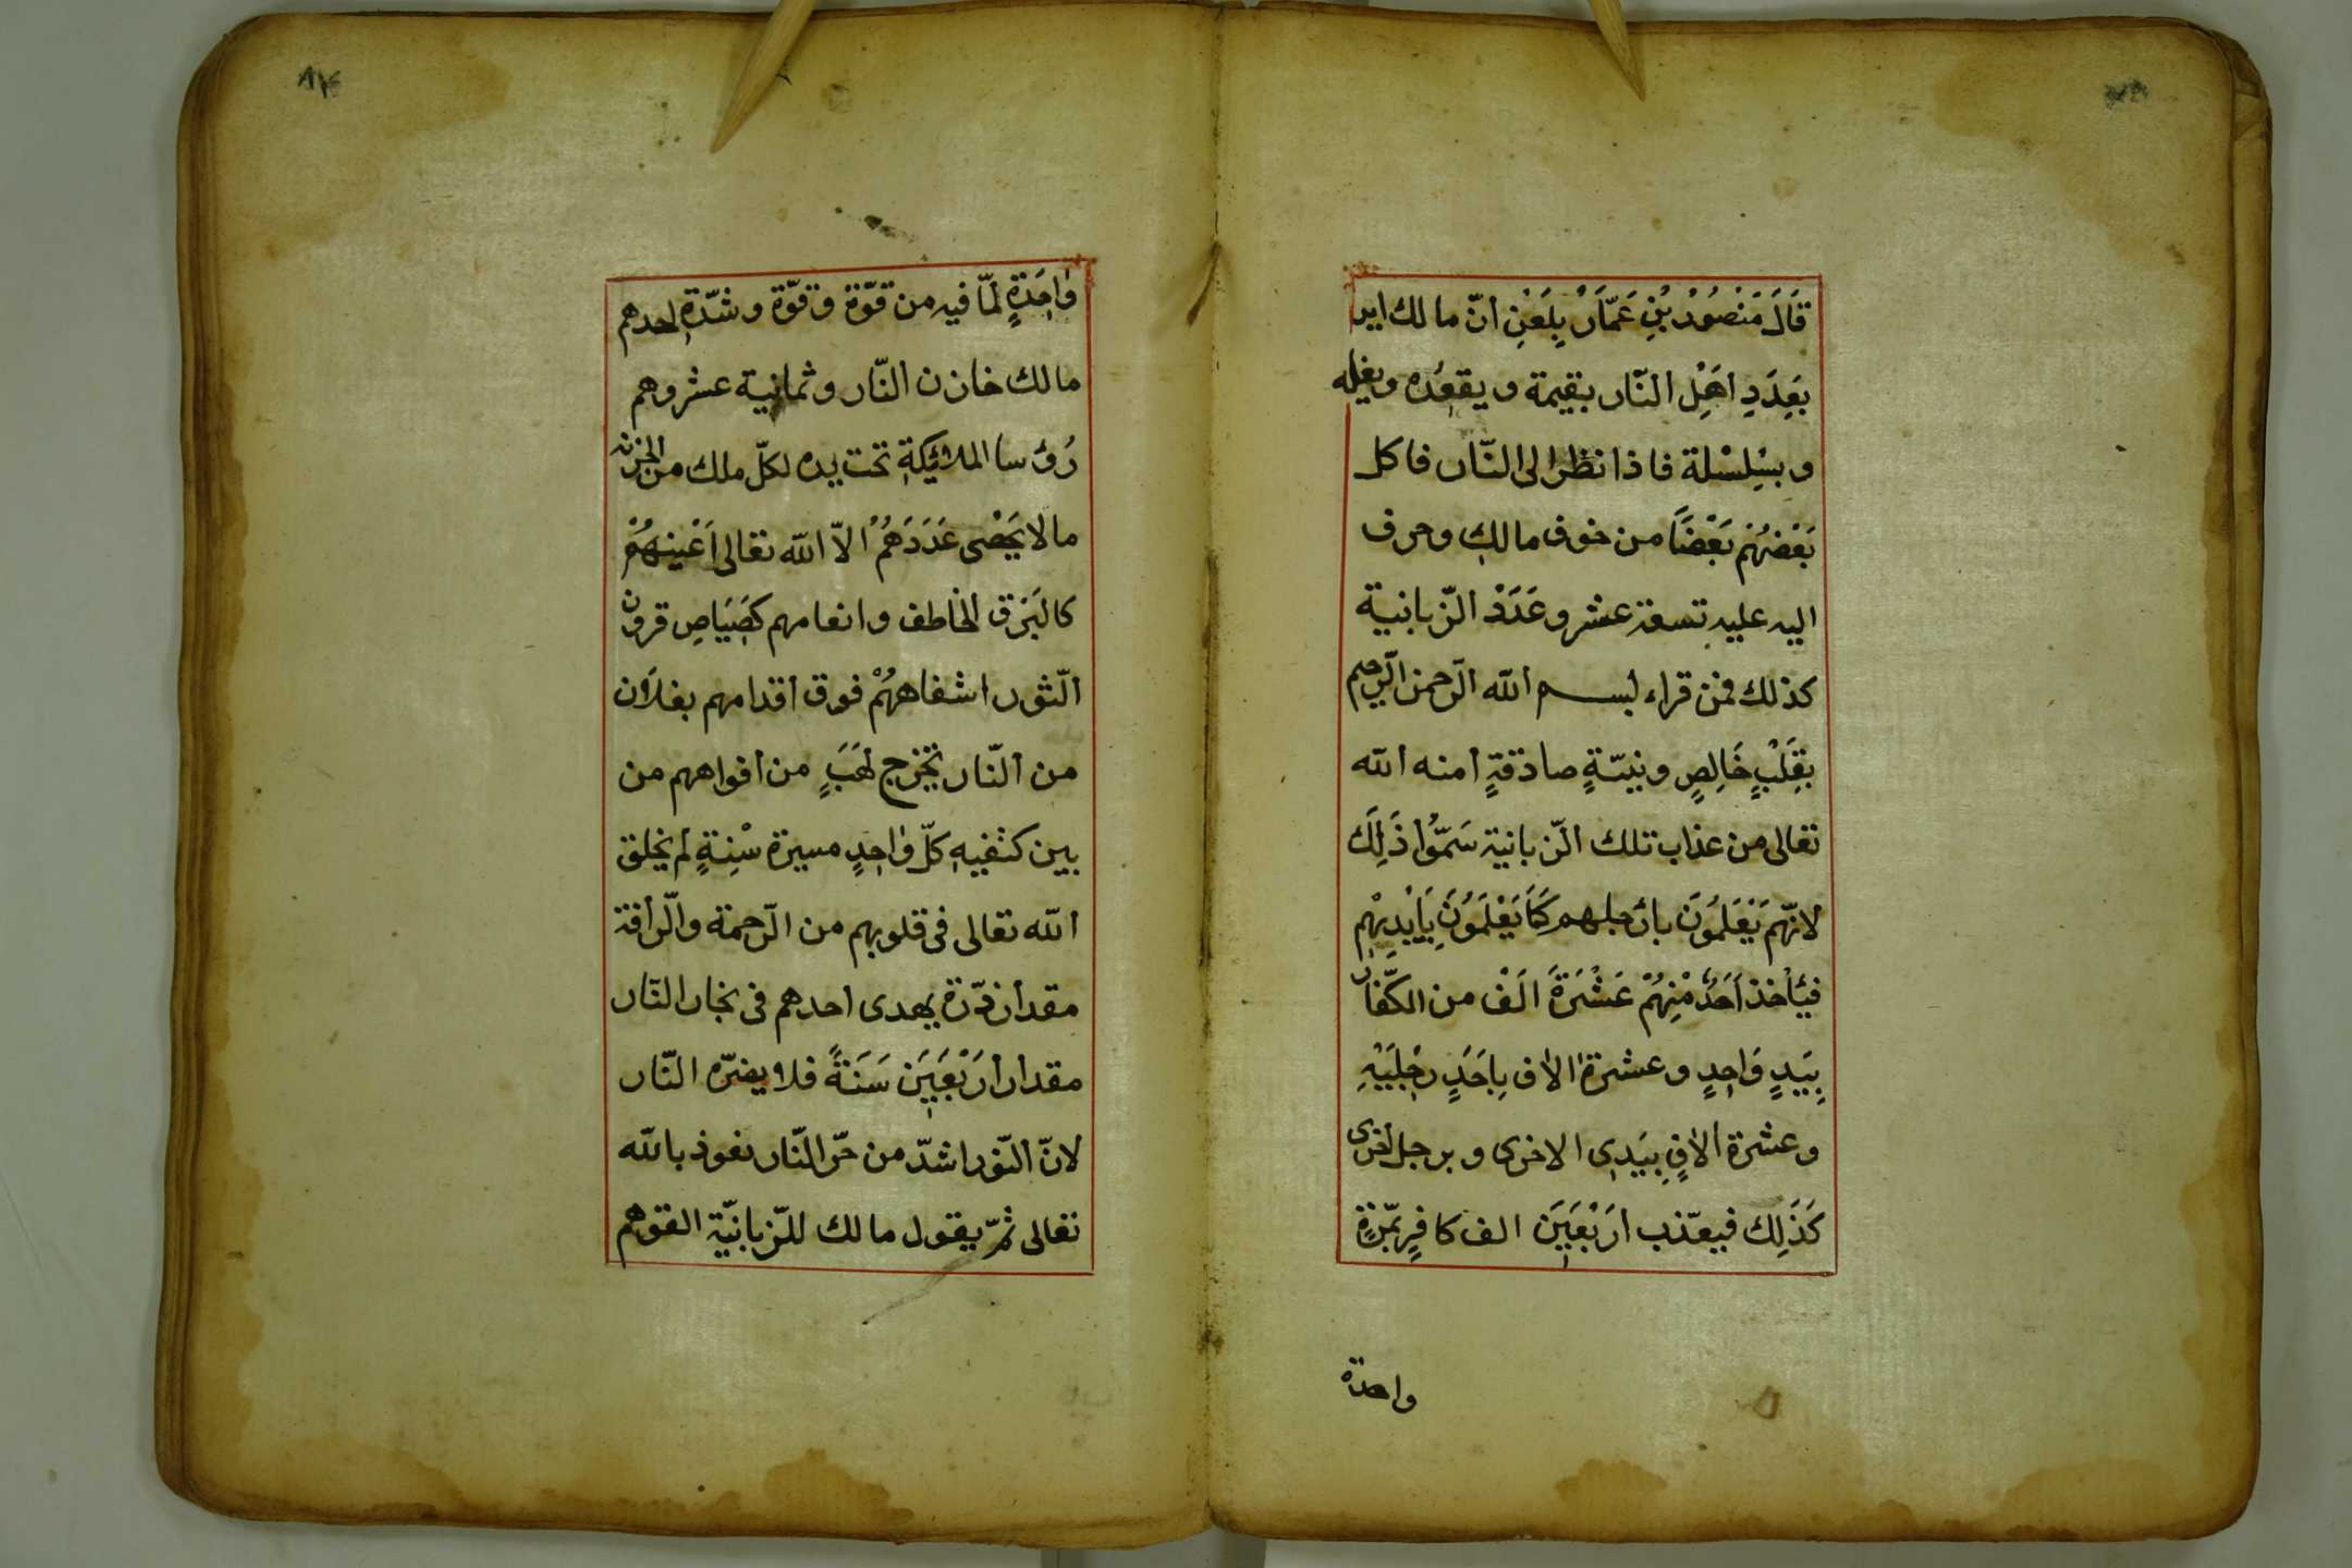 قَالَ مَنْصُورْ بُنِ عَمَّارْ بِلَعَنِ انّ مالك ايد
بَعِدَدِ اَهَلِ النّار بقيمة و يقعده ويغله
و بسْلِسْلة فاذا نظر الى النّار فاكل
بَعْضُهُمْ بَعْضًا من خوف مالك وحرف
اليه عليه تسعة عشر وعَدَدْ الزّبانية
كذلك فمن قراء بسم الله الرّحمن الرّحيم
بقَلْبٍ خَالِصٍ ونيّةٍ صادقةٍ امنه الله
تعالى من عذاب تلك الزّبانية سَمُّوا ذَلِكَ
لانّهم يَعْلَمُونَ بارجلهم كَمَا يَعْلَمُونَ بِاَيْدِيهِم
فيَأخذ اَحَدٌ مْنِهُمْ عَشْرَةَ اَلَفْ من الكفّار
بِيَدٍ وَاحِدٍ و عشرة الاف بِاحَدٍ رِجْلَيْهِ
و عشرة الافٍ بِيَدِى الاخرى و برجل اخرى
كَذَلِك فيعذّب ارَبْعَيِنَ الف كافرٍ بمّرةٍ
واحدة
وَاحِدَةٍ لمّا فيه من قوّة وقوّة و شدّةِ احدهم
مالك خازن النّار و ثمانية عشر وهم
رُؤسا الملائكة تحت يده لكلّ ملك من الخزنة
مالا يَحْصى عَدَدَهُمْ الاّ الله تعالى اَعْينهُمْ
كالبَرْق الخاطف وانعامهم كصَيَاصِ قرون
الثّور اشفاههُمْ فوق اقدامهم بغلان
من النّار يخرج لهَبٍ من افواههم من
بين كتفيه كلّ وٰاحدٍ مسيرة سْنِةٍ لم يخلق
الله تعالى فى قلوبهم من الرّحمة والرّافة
مقدار ذرّة يهدى احدهم فى بحار النّار
مقدار ارَبْعَيِنَ سَنَةً فلا يضرّه النّار
لانّ النّور اشدّ من حرّ النّار نعوذ بالله
تعالى ثمّ يقول مالك للزّبانيّة القوهم